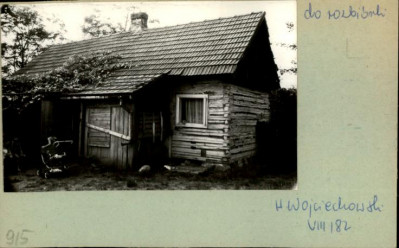 do rozbiórki
H Wojciechowski
VIII 82
915